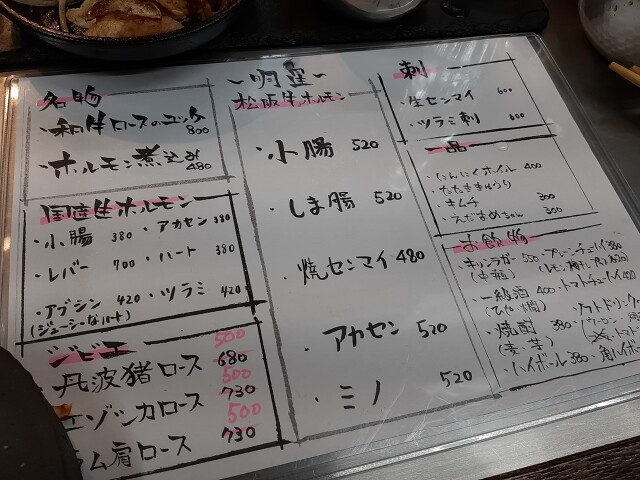 名物
・和牛ロースのユッケ
800
・ホルモン煮込み
480
国産牛ホルモン
・小腸 380 ・アカセン 380
・レバー 700 ・ハート 380
・アブシン 420 ・ツラミ 420
(ジューシーなハート)
ジビエ
500
丹波猪ロース 680
500
エゾシカロース 730
500
ラム肩ロース 730
~明星~
松阪牛ホルモン
・小腸 520
・しま腸 520
・焼センマイ 480
・アカセン 520
・ミノ 520
刺
・生センマイ 600
・ツラミ刺 600
一品
・にんにくホイル 400
・たたききゅうり
・キムチ 300
・えだまめちゃん 300
お飲物
・キリンラガー 500 ・プレーンチューハイ 380
(中瓶)
・一級酒 400 ・トマトチューハイ 420
(ひや・燗)
・焼酎 380
(麦・芋)
・ハイボール 380